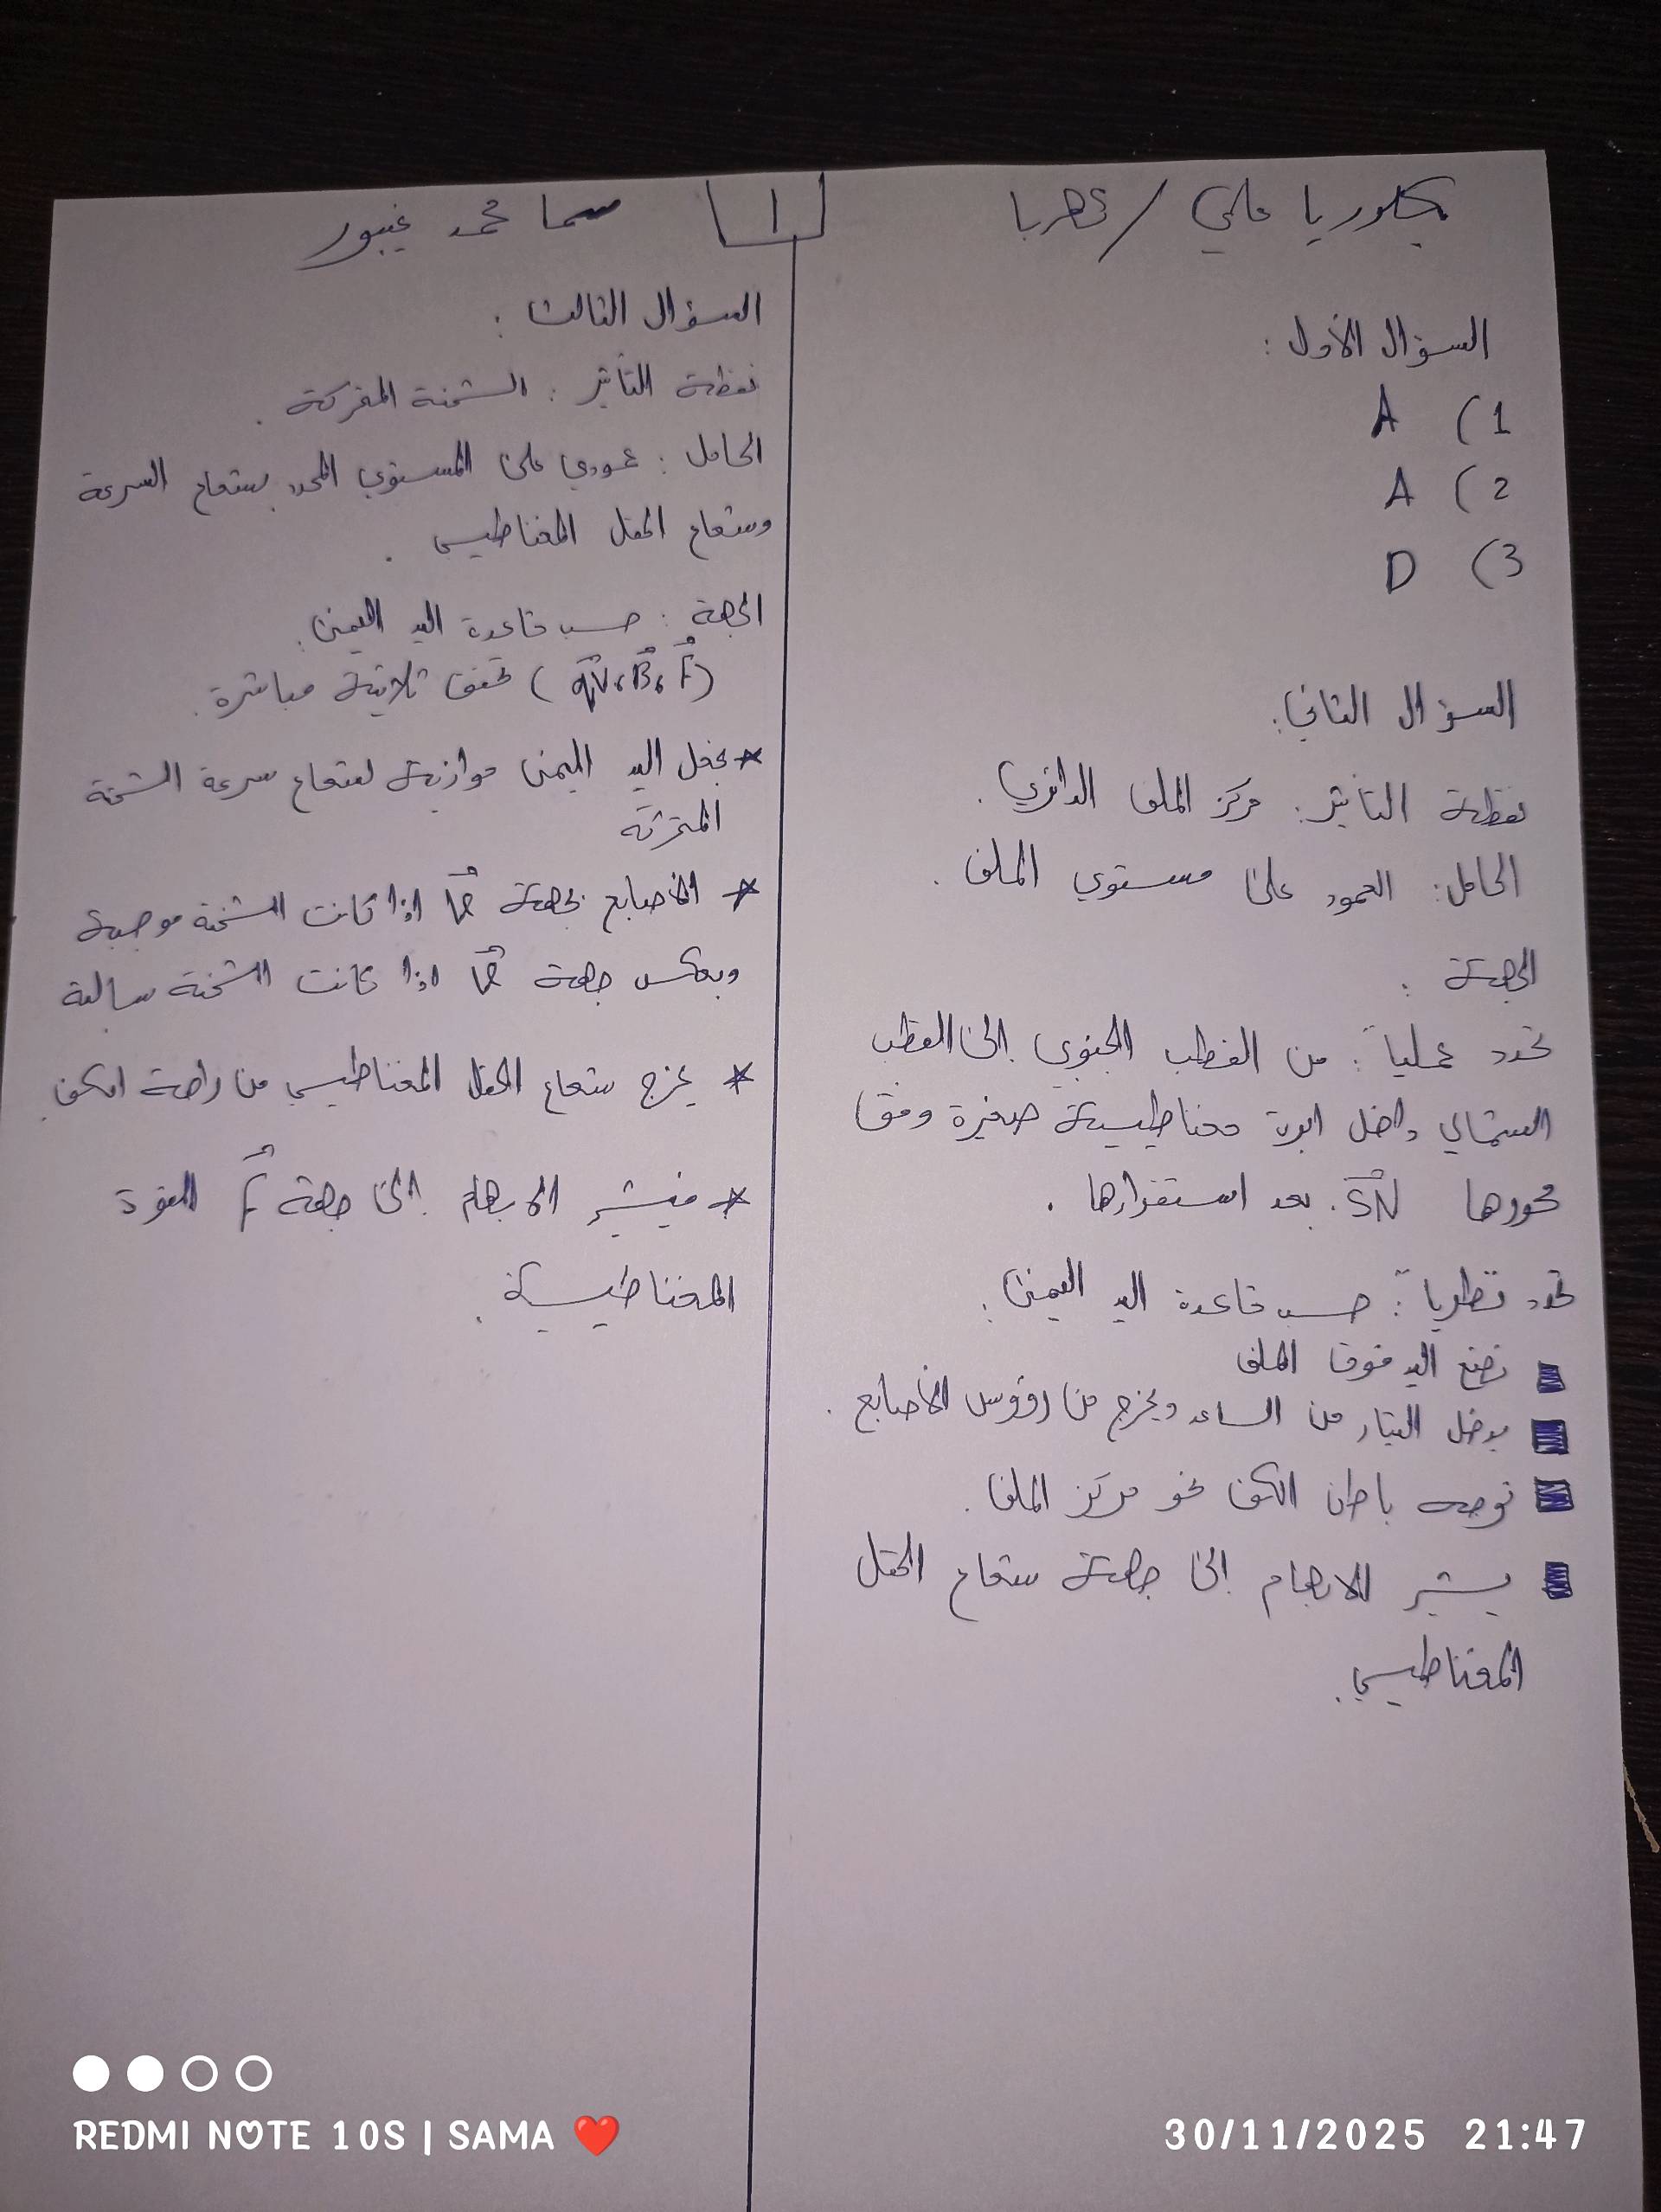 بكلوريا علمي / كهربا
١
سما محمد غيبور
السؤال الأول :
1) A
2) A
3) D
السؤال الثاني:
نقطة التأثير : مركز الملف الدائري .
الحامل : العمود على مستوي الملف .
الجهة :
تحدد عملياً : من القطب الجنوبي إلى القطب
الشمالي داخل ابرة مغناطيسية صغيرة وفق
محورها SN بعد استقرارها .
تحدد نظرياً : حسب قاعدة اليد اليمنى .
نضع اليد فوق الملف
يدخل التيار من الساعد ويخرج من رؤوس الأصابع .
نوجه باطن الكف نحو مركز الملف .
يشير الابهام إلى جهة شعاع الحقل
المغناطيسي .
السؤال الثالث :
نقطة التأثير : الشحنة المتحركة .
الحامل : عمودي على المستوي المحدد بشعاع السرعة
وشعاع الحقل المغناطيسي .
الجهة : حسب قاعدة اليد اليمنى .
(qV⃗, B⃗, F⃗) تحقق ثلاثية مباشرة .
* نجعل اليد اليمنى موازية لشعاع سرعة الشحنة
المتحركة
* الأصابع بجهة v⃗ اذا كانت الشحنة موجبة
وبعكس جهة v⃗ اذا كانت الشحنة سالبة
* يخرج شعاع الحقل المغناطيسي من راحة الكف .
* فيشير الابهام إلى جهة F⃗ القوة
المغناطيسية .
REDMI NOTE 10S | SAMA ❤️
30/11/2025 21:47